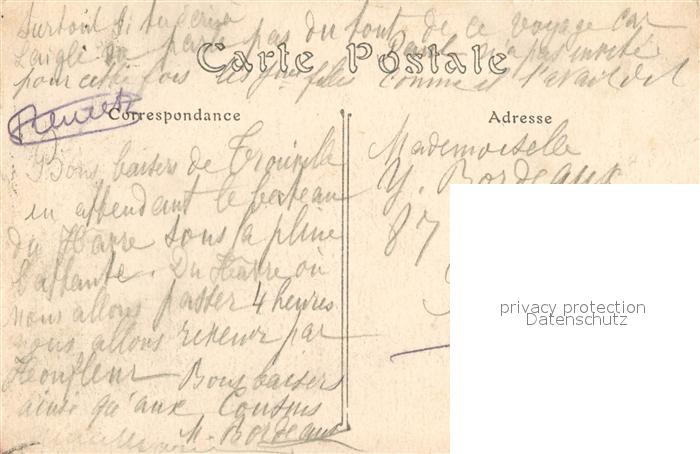 Surtout si tu écris à
Laigle ne parle pas du tout de ce voyage car
Paul n'a pas invité
pour cette fois les jnes filles comme il l'avait dit
Carte Postale
Correspondance
Bons baisers de Trouville
en attendant le bateau
du Havre sous la pluie
battante. Du Havre où
nous allons passer 4 heures
nous allons revenir par
Honfleur Bons baisers
ainsi qu'aux Cousins
M. Bordeaux
Adresse
Mademoiselle
Y. Bordeaux
87
privacy protection
Datenschutz